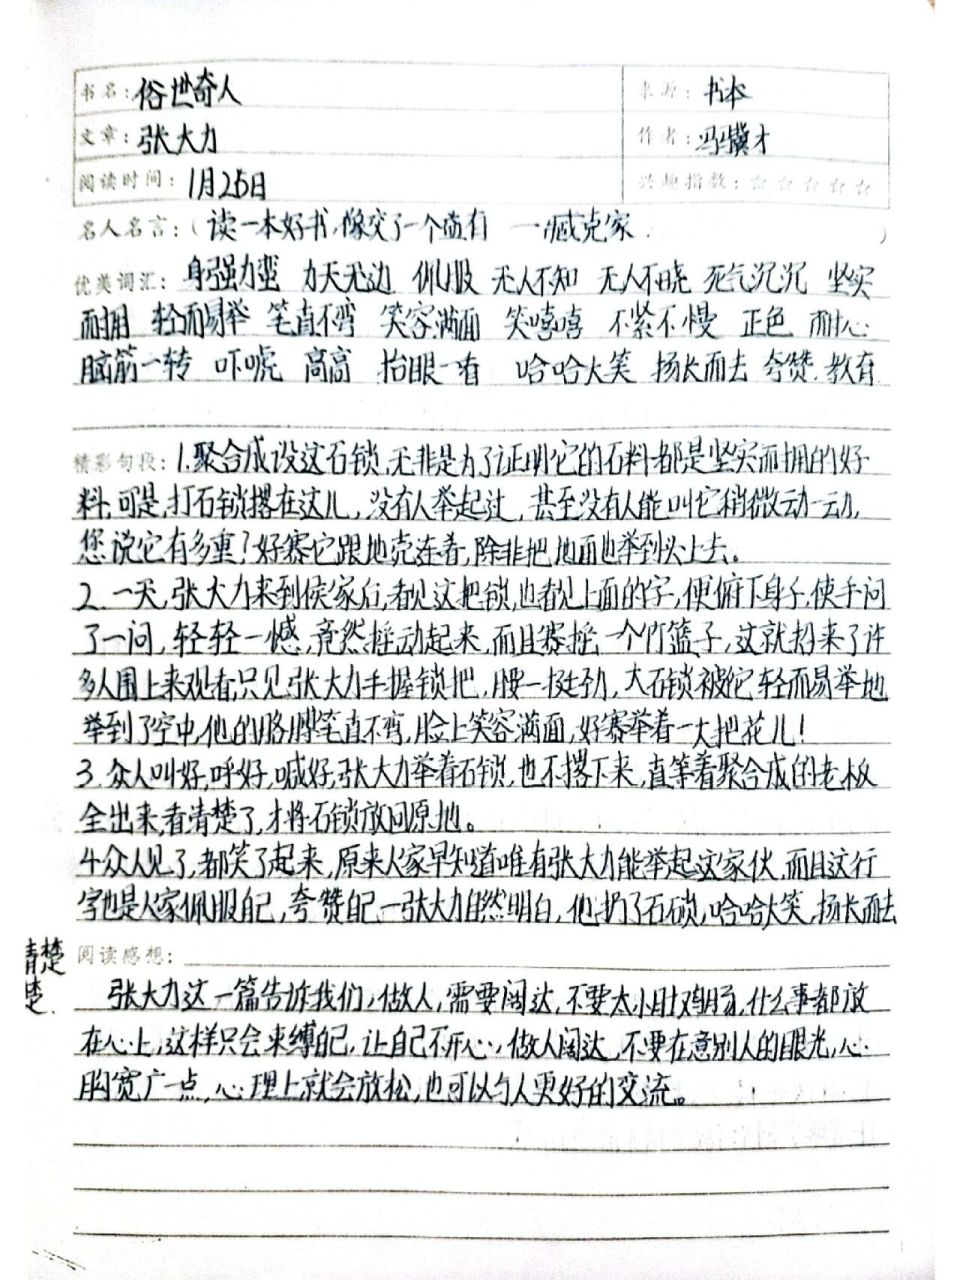 书名: 俗世奇人 来源: 书本
文章: 张大力 作者: 冯骥才
阅读时间: 1月25日 兴趣指数: ☆☆☆☆☆
名人名言:(读一本好书,像交了一个益有 一臧克家)
优美词汇: 身强力蛮 力大无边 佩服 无人不知 无人不晓 死气沉沉 坚实
而耐用 轻而易举 笔直不弯 笑容满面 笑嘻嘻 不紧不慢 正色 耐心
脑筋一转 吓唬 高高 抬眼一看 哈哈大笑 扬长而去 夸赞 教育
精彩句段: 1.聚合成设这石锁,无非是为了证明它的石料都是坚实而拥的好
料.可是,打石锁撂在这儿,没有人举起过,甚至没有人能叫它稍微动一动,
您说它有多重?好赛它跟地壳连着,除非把地面也举到头上去。
2.一天,张大力来到侯家后,看见这把锁,也看见上面的字,便俯下身子,使手问
了一问,轻轻一撼,竟然摇动起来,而且赛摇一个竹篮子,这就招来了许
多人围上来观看,只见张大力手握锁把,腰一挺劲,大石锁被它轻而易举地
举到了空中,他的胳膊笔直不弯,脸上笑容满面,好赛举着一大把花儿!
3.众人叫好,呼好,喊好,张大力举着石锁,也不撂下来,直等着聚合成的老板
全出来,看清楚了,才将石锁放回原地。
4众人见了,都笑了起来,原来人家早知道唯有张大力能举起这家伙,而且这行
字也是人家佩服自己,夸赞自己一张大力自然明白,他扔了石锁,哈哈大笑,扬长而去
清楚 阅读感想:
楚.
张大力这一篇告诉我们,做人,需要阔达,不要太小肚鸡肠,什么事都放
在心上,这样只会束缚自己,让自己不开心,做人阔达,不要在意别人的眼光,心
胸宽广一点,心理上就会放松,也可以与人更好的交流。